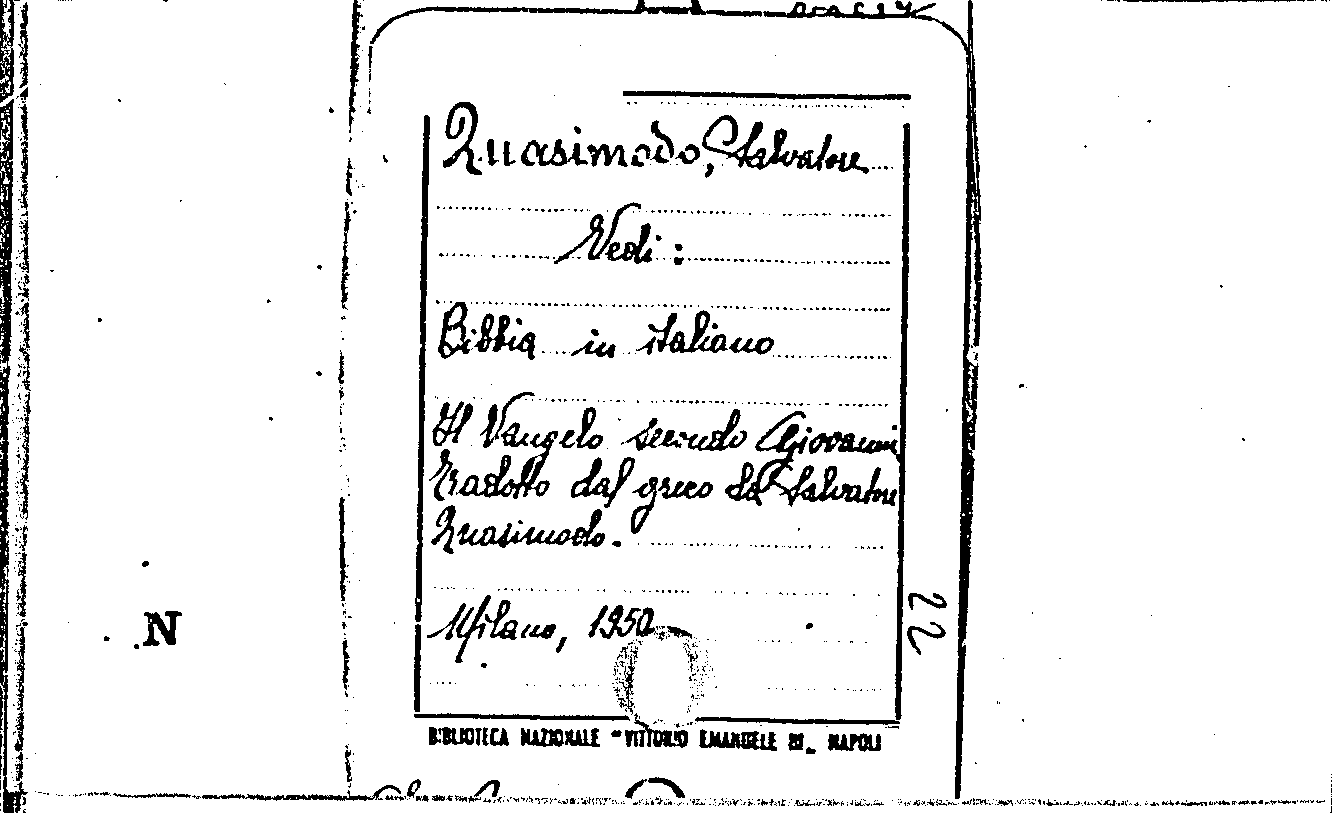 Quasimodo, Salvatore
Vedi:
Bibbia in italiano
Il Vangelo secondo Giovanni
tradotto dal greco da Salvatore
Quasimodo.
Milano, 1950
22
N
BIBLIOTECA NAZIONALE "VITTORIO EMANUELE III„ NAPOLI